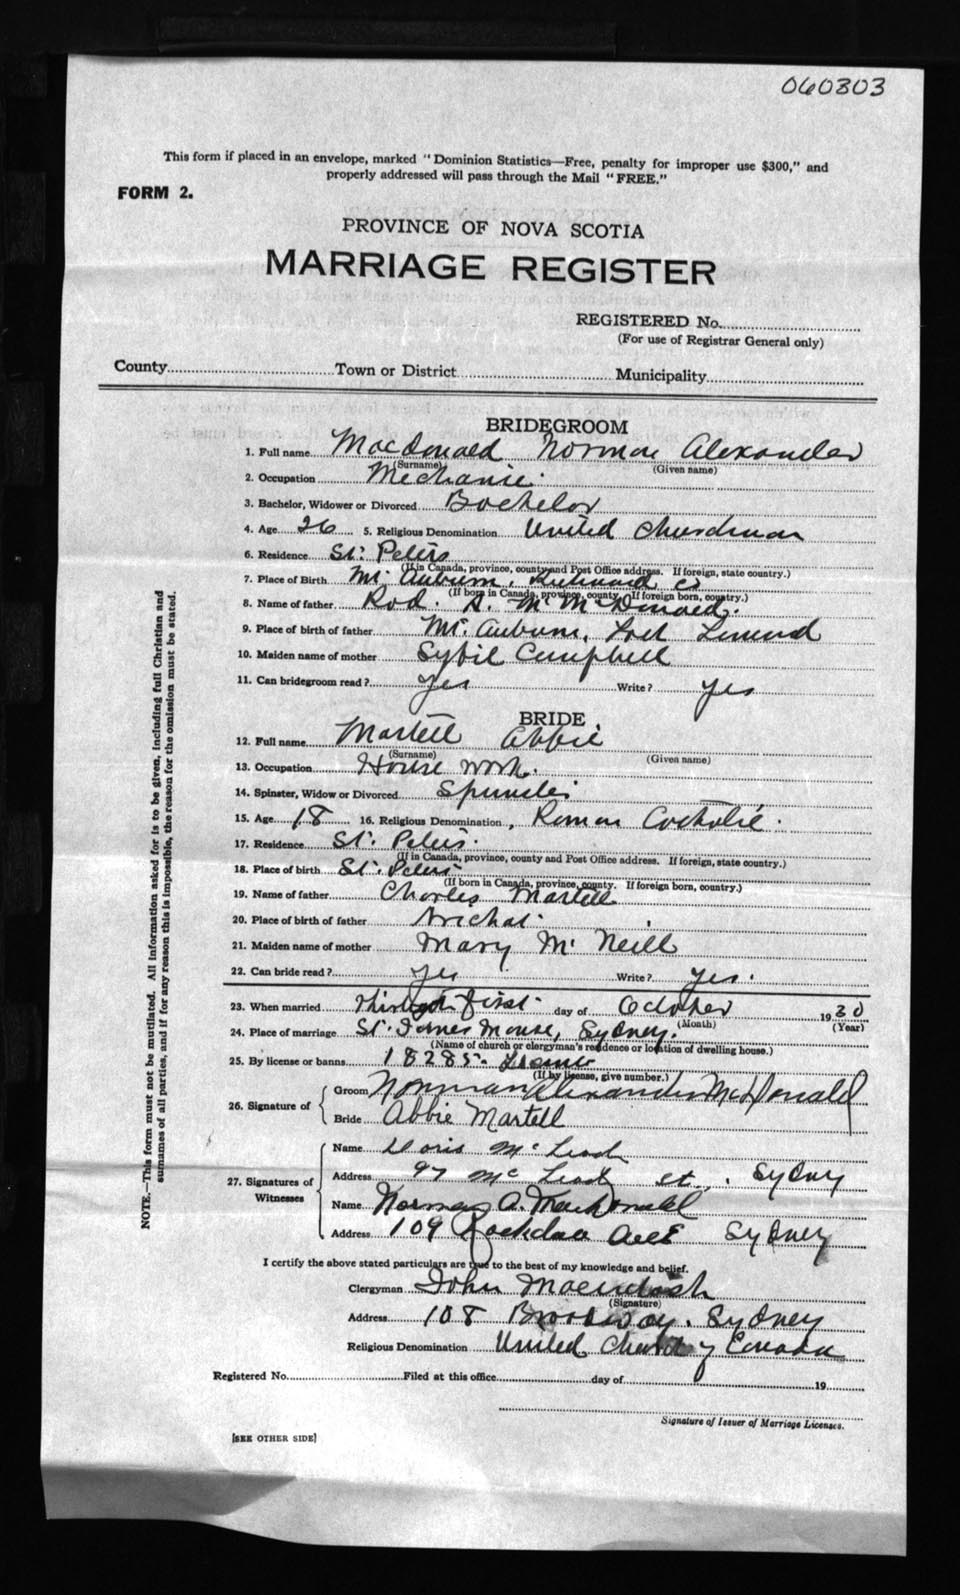 060303
This form if placed in an envelope, marked "Dominion Statistics—Free, penalty for improper use $300," and
properly addressed will pass through the Mail "FREE."
FORM 2.
PROVINCE OF NOVA SCOTIA
MARRIAGE REGISTER
REGISTERED No.
(For use of Registrar General only)
County Town or District Municipality
BRIDEGROOM
1. Full name MacDonald Norman Alexander
(Surname) (Given name)
2. Occupation Mechanic
3. Bachelor, Widower or Divorced Bachelor
4. Age 26 5. Religious Denomination United Churchman
6. Residence St. Peters
(If in Canada, province, county and Post Office address. If foreign, state country.)
7. Place of Birth Mt. Auburn, Richmond Co
(If born in Canada, province, county. If foreign born, country.)
8. Name of father Rod. A. McDonald.
9. Place of birth of father Mt. Auburn, Loch Lomond
10. Maiden name of mother Sybil Campbell
11. Can bridegroom read? Yes Write? Yes
BRIDE
12. Full name Martell Abbie
(Surname) (Given name)
13. Occupation House work.
14. Spinster, Widow or Divorced Spinster
15. Age 18 16. Religious Denomination Roman Catholic.
17. Residence St. Peters.
(If in Canada, province, county and Post Office address. If foreign, state country.)
18. Place of birth St. Peters
(If born in Canada, province, county. If foreign born, country.)
19. Name of father Charles Martell
20. Place of birth of father Arichat
21. Maiden name of mother Mary McNeill
22. Can bride read? Yes Write? Yes.
23. When married Thirty first day of October 1930
(Month) (Year)
24. Place of marriage St. James Manse, Sydney.
(Name of church or clergyman's residence or location of dwelling house.)
25. By license or banns 18285- License
(If by license, give number.)
26. Signature of
Groom Norman Alexander McDonald
Bride Abbie Martell
27. Signatures of Witnesses
Name Doris McLeod
Address 97 McLeod st., Sydney
Name Norman A. MacDonald
Address 109 Rockdale Ave Sydney
I certify the above stated particulars are true to the best of my knowledge and belief.
Clergyman John Macintosh
(Signature)
Address 108 Broadway. Sydney
Religious Denomination United Church of Canada
Registered No. Filed at this office day of 19
Signature of Issuer of Marriage Licenses.
[SEE OTHER SIDE]
NOTE.—This form must not be mutilated. All information asked for is to be given, including full Christian and
surnames of all parties, and if for any reason this is impossible, the reason for the omission must be stated.